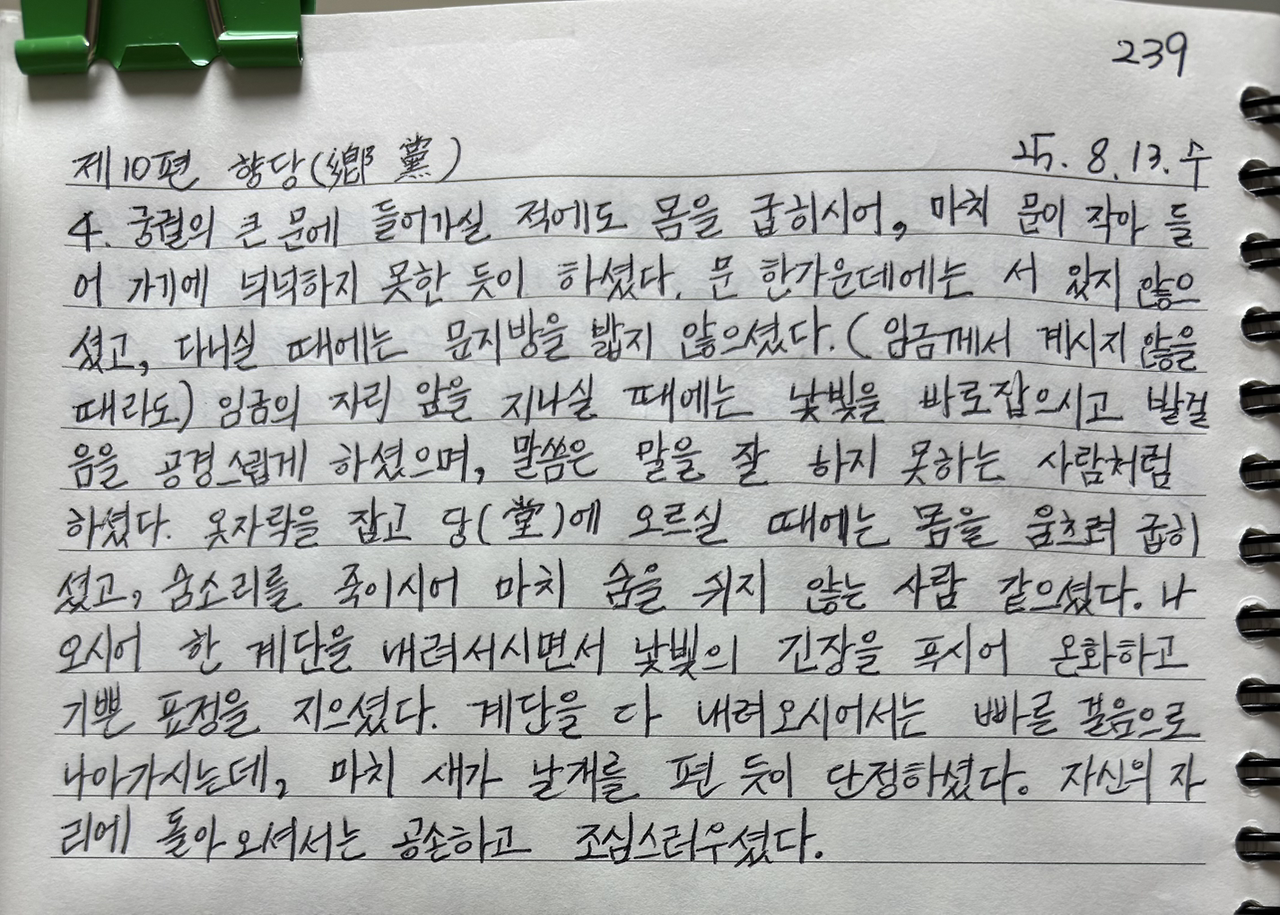 239
제10편 향당(鄕黨) 25. 8. 13. 수
4. 궁궐의 큰 문에 들어가실 적에도 몸을 굽히시어, 마치 문이 작아 들
어 가기에 넉넉하지 못한 듯이 하셨다. 문 한가운데에는 서 있지 않으
셨고, 다니실 때에는 문지방을 밟지 않으셨다. (임금께서 계시지 않을
때라도) 임금의 자리 앞을 지나실 때에는 낯빛을 바로잡으시고 발걸
음을 공경스럽게 하셨으며, 말씀은 말을 잘 하지 못하는 사람처럼
하셨다. 옷자락을 잡고 당(堂)에 오르실 때에는 몸을 움츠려 굽히
셨고, 숨소리를 죽이시어 마치 숨을 쉬지 않는 사람 같으셨다. 나
오시어 한 계단을 내려서시면서 낯빛의 긴장을 푸시어 온화하고
기쁜 표정을 지으셨다. 계단을 다 내려오시어서는 빠른 걸음으로
나아가시는데, 마치 새가 날개를 편 듯이 단정하셨다. 자신의 자
리에 돌아오셔서는 공손하고 조심스러우셨다.